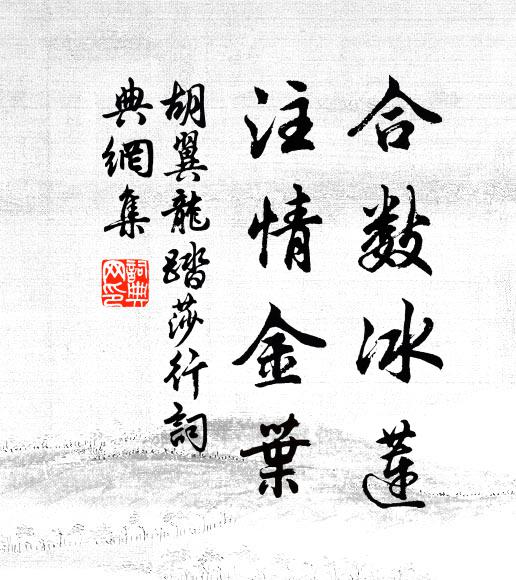 合數冰蓮
注情金葉
胡翼龍踏莎行詞
典網集
詞典網印